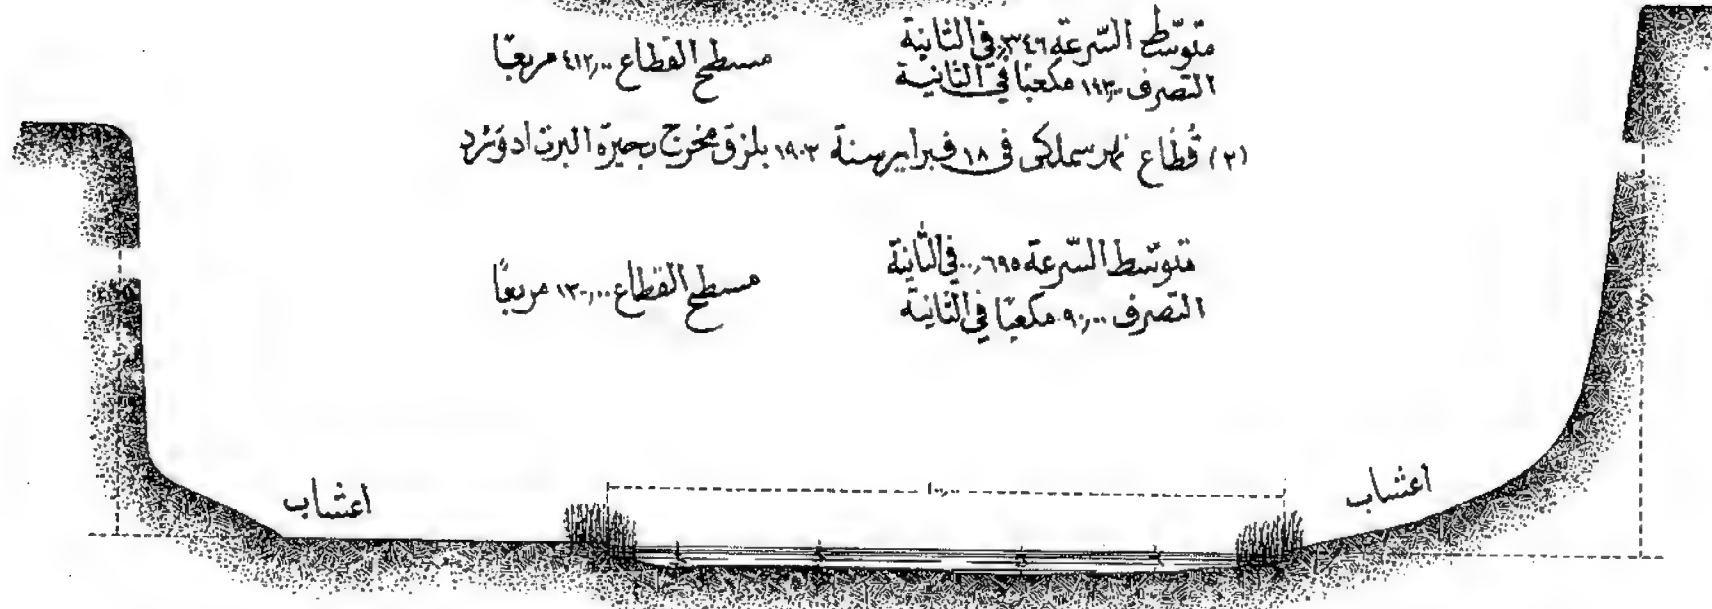 متوسّط السّرعة ٣٤٦٫ في الثانية
التصرف ١٤٣٫٠٠ مكعبًا في الثانية
مسطح القطاع ٤١٢٫٠٠ مربعًا
(٢) قطاع نهر سملكى فى ١٨ فبراير سنة ١٩٠٣ بلزق مخرج بحيرة البرت ادورد
متوسّط السّرعة ٠٫٦٩٥ في الثانية
التصرف ٩٠٫٠٠ مكعبًا في الثانية
مسطح القطاع ١٣٠٫٠٠ مربعًا
اعشاب
١٠٠٫٠٠
اعشاب